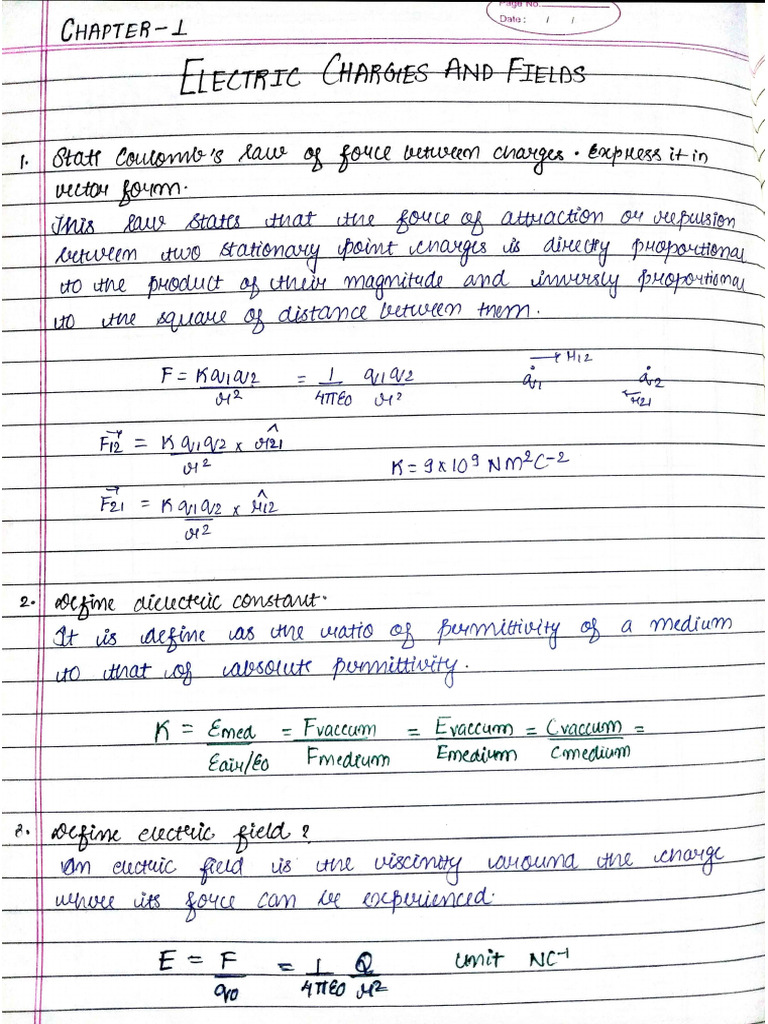 Page No.
Date: / /
CHAPTER-1
ELECTRIC CHARGES AND FIELDS
1. State Coulomb's law of force between charges. Express it in
vector form.
This law states that the force of attraction or repulsion
between two stationary point charges is directly proportional
to the product of their magnitude and inversly proportional
to the square of distance between them.
F = Kq1q2/r² = 1/4πε0 q1q2/r² → r12 q1 q2 ← r21
F12→ = K q1q2/r² × r̂21
K = 9 × 10⁹ Nm²C⁻²
F21→ = K q1q2/r² × r̂12
2. Define dielectric constant.
It is define as the ratio of permittivity of a medium
to that of absolute permittivity.
K = Emed/Eair/E0 = Fvaccum/Fmedium = Evaccum/Emedium = Cvaccum/Cmedium =
3. Define electric field?
An electric field is the viscinity around the charge
where its force can be experienced.
E = F/q0 = 1/4πε0 Q/r² Unit NC⁻¹